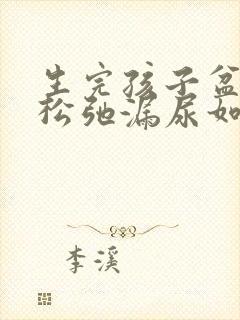 生完孩子盆
松弛漏尿如
李溪